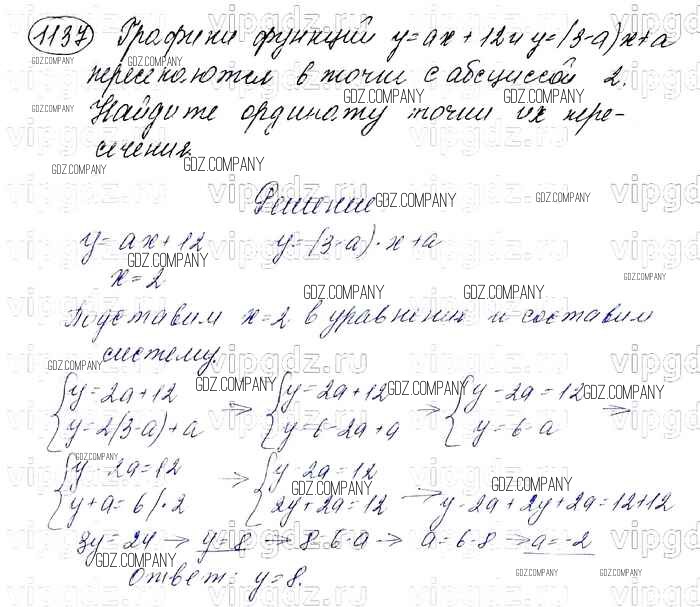 1137 Графики функций y=ax+12 и y=(3-a)x+a
пересекаются в точки с абсциссой 2.
Найдите ординату точки их пере-
сечения.
Решение
y=ax+12 y=(3-a)·x+a
x=2
Подставим x=2 в уравнения и составим
систему.
{y=2a+12 → {y=2a+12 → {y-2a=12 →
{y=2(3-a)+a {y=6-2a+a {y=6-a
{y-2a=12 → {y-2a=12
{y+a=6 |·2 {2y+2a=12 → y-2a+2y+2a=12+12
3y=24 → y=8 → 8=6-a → a=6-8 → a=-2
Ответ: y=8.
GDZ.COMPANY
vipgdz.ru